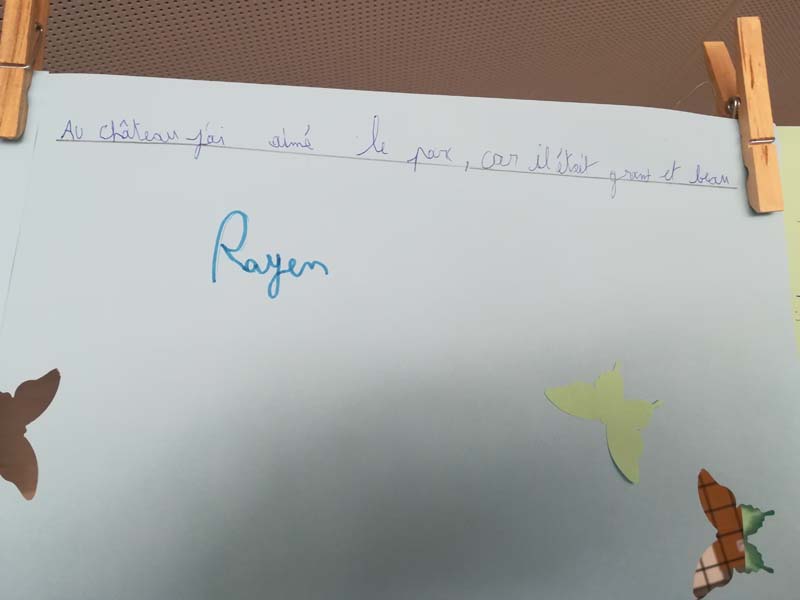 Au château j'ai aimé le par, car il était grant et beau
Rayen